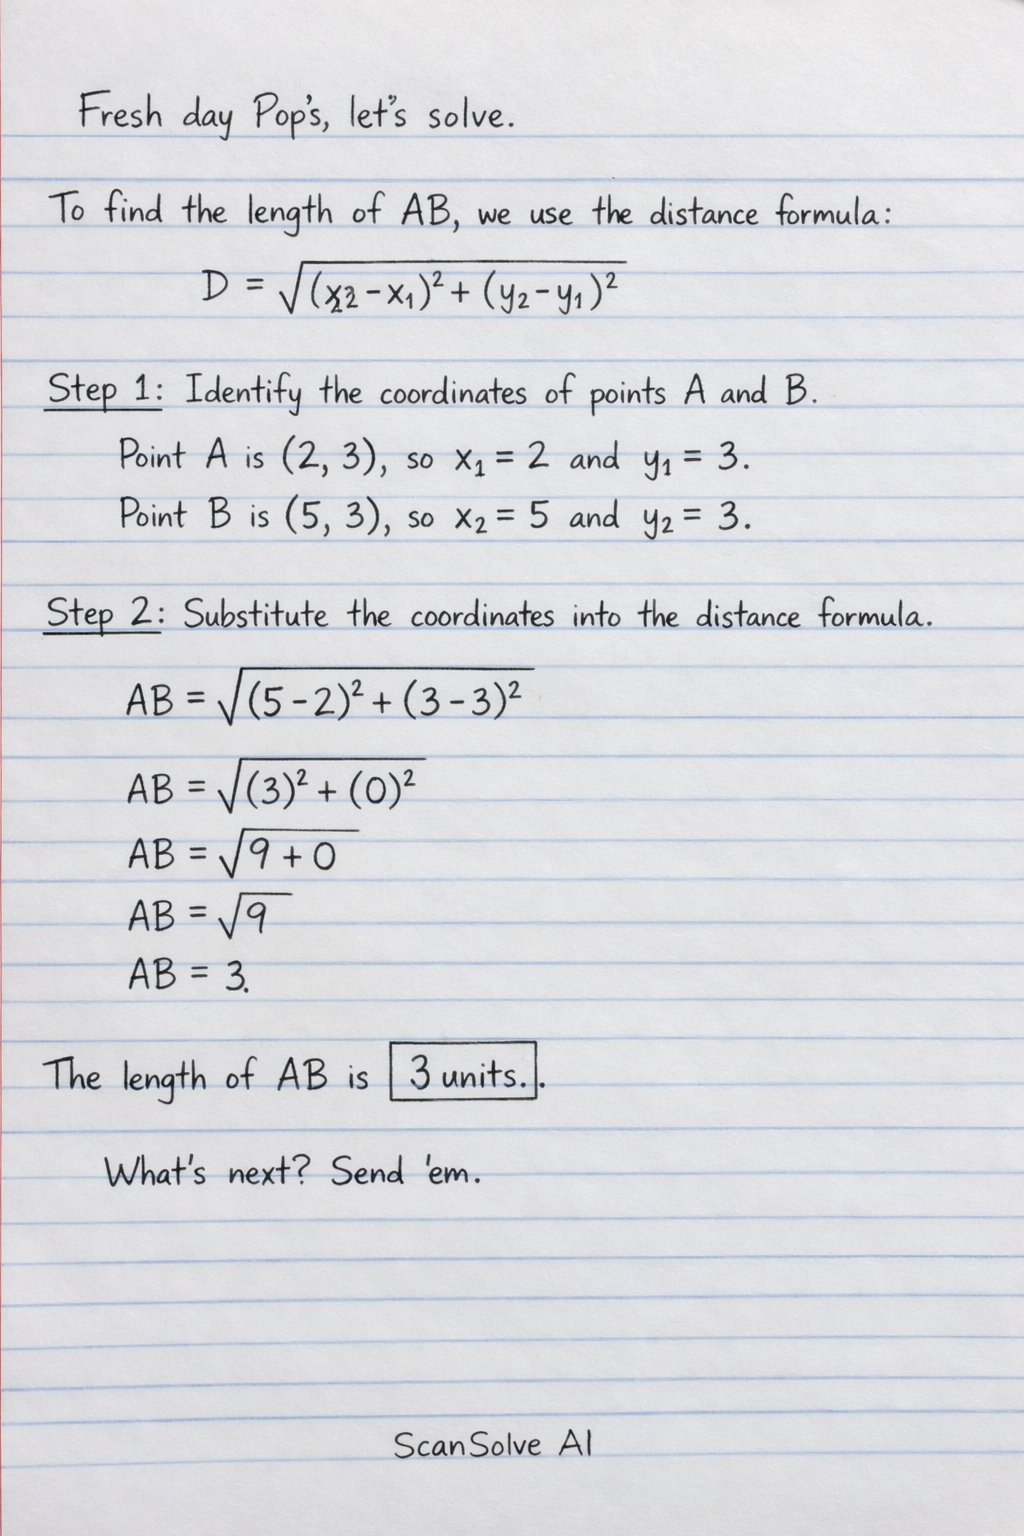 Fresh day Pop's, let's solve.
To find the length of AB, we use the distance formula:
D = √(x2 - x₁)² + (y₂ - y₁)²
Step 1: Identify the coordinates of points A and B.
Point A is (2, 3), so x₁ = 2 and y₁ = 3.
Point B is (5, 3), so x₂ = 5 and y₂ = 3.
Step 2: Substitute the coordinates into the distance formula.
AB = √(5 - 2)² + (3 - 3)²
AB = √(3)² + (0)²
AB = √9 + 0
AB = √9
AB = 3.
The length of AB is 3 units..
What's next? Send 'em.
ScanSolve AI